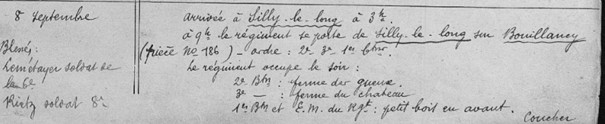 8 septembre
Blessés:
Lemétayer soldat de
la 6e
Rietz soldat 8e
arrivée à Silly-le-long à 3h.
à 9h le régiment se porte de Silly-le-long sur Bouillancy
(pièce No 186) - ordre : 2e 3e 1er Btns.
Le régiment occupe le soir :
2e Btn : ferme des gueux.
3e — : ferme du chateau
1er Btn et E.M. du Rgt : petit bois en avant.
Coucher